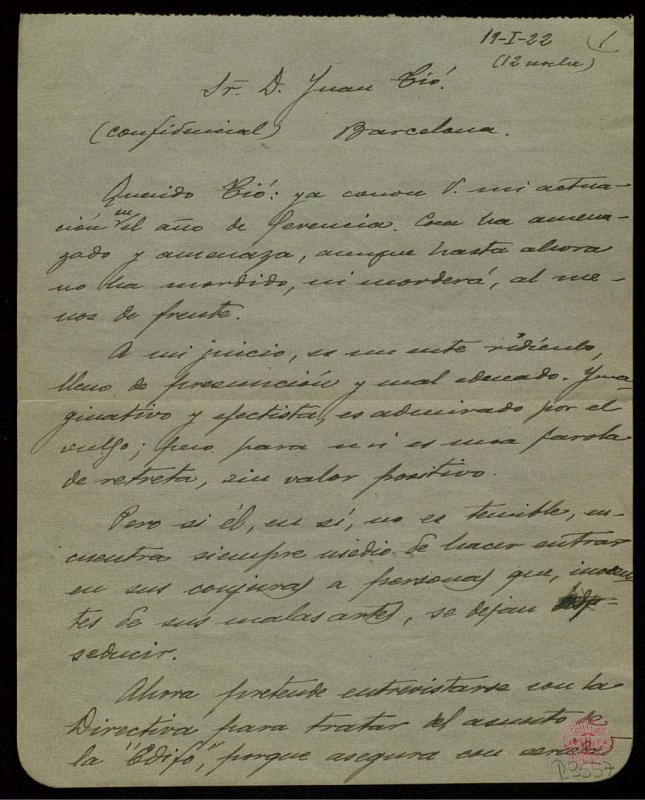 19-I-22 1
(12 noche)
Sr. D. Juan Tió.
(confidencial) Barcelona.
Querido Tió: ya conoce V. mi actua-
ción en el año de Gerencia. Coca ha amena-
zado y amenaza, aunque hasta ahora
no ha mordido, ni morderá, al me-
nos de frente.
A mi juicio, es un ente ridículo,
lleno de presunción y mal educado. Yma
ginativo y efectista, es admirado por el
vulgo; pero para mi es una farola
de retreta, sin valor positivo.
Pero si él, en sí, no es temible, en-
cuentra siempre medio de hacer entrar
en sus conjuras a personas que, inocen
tes de sus malas artes, se dejan
seducir.
Ahora pretende entrevistarse con la
Directiva para tratar del asunto de
la "Edifo", porque asegura con
R3557